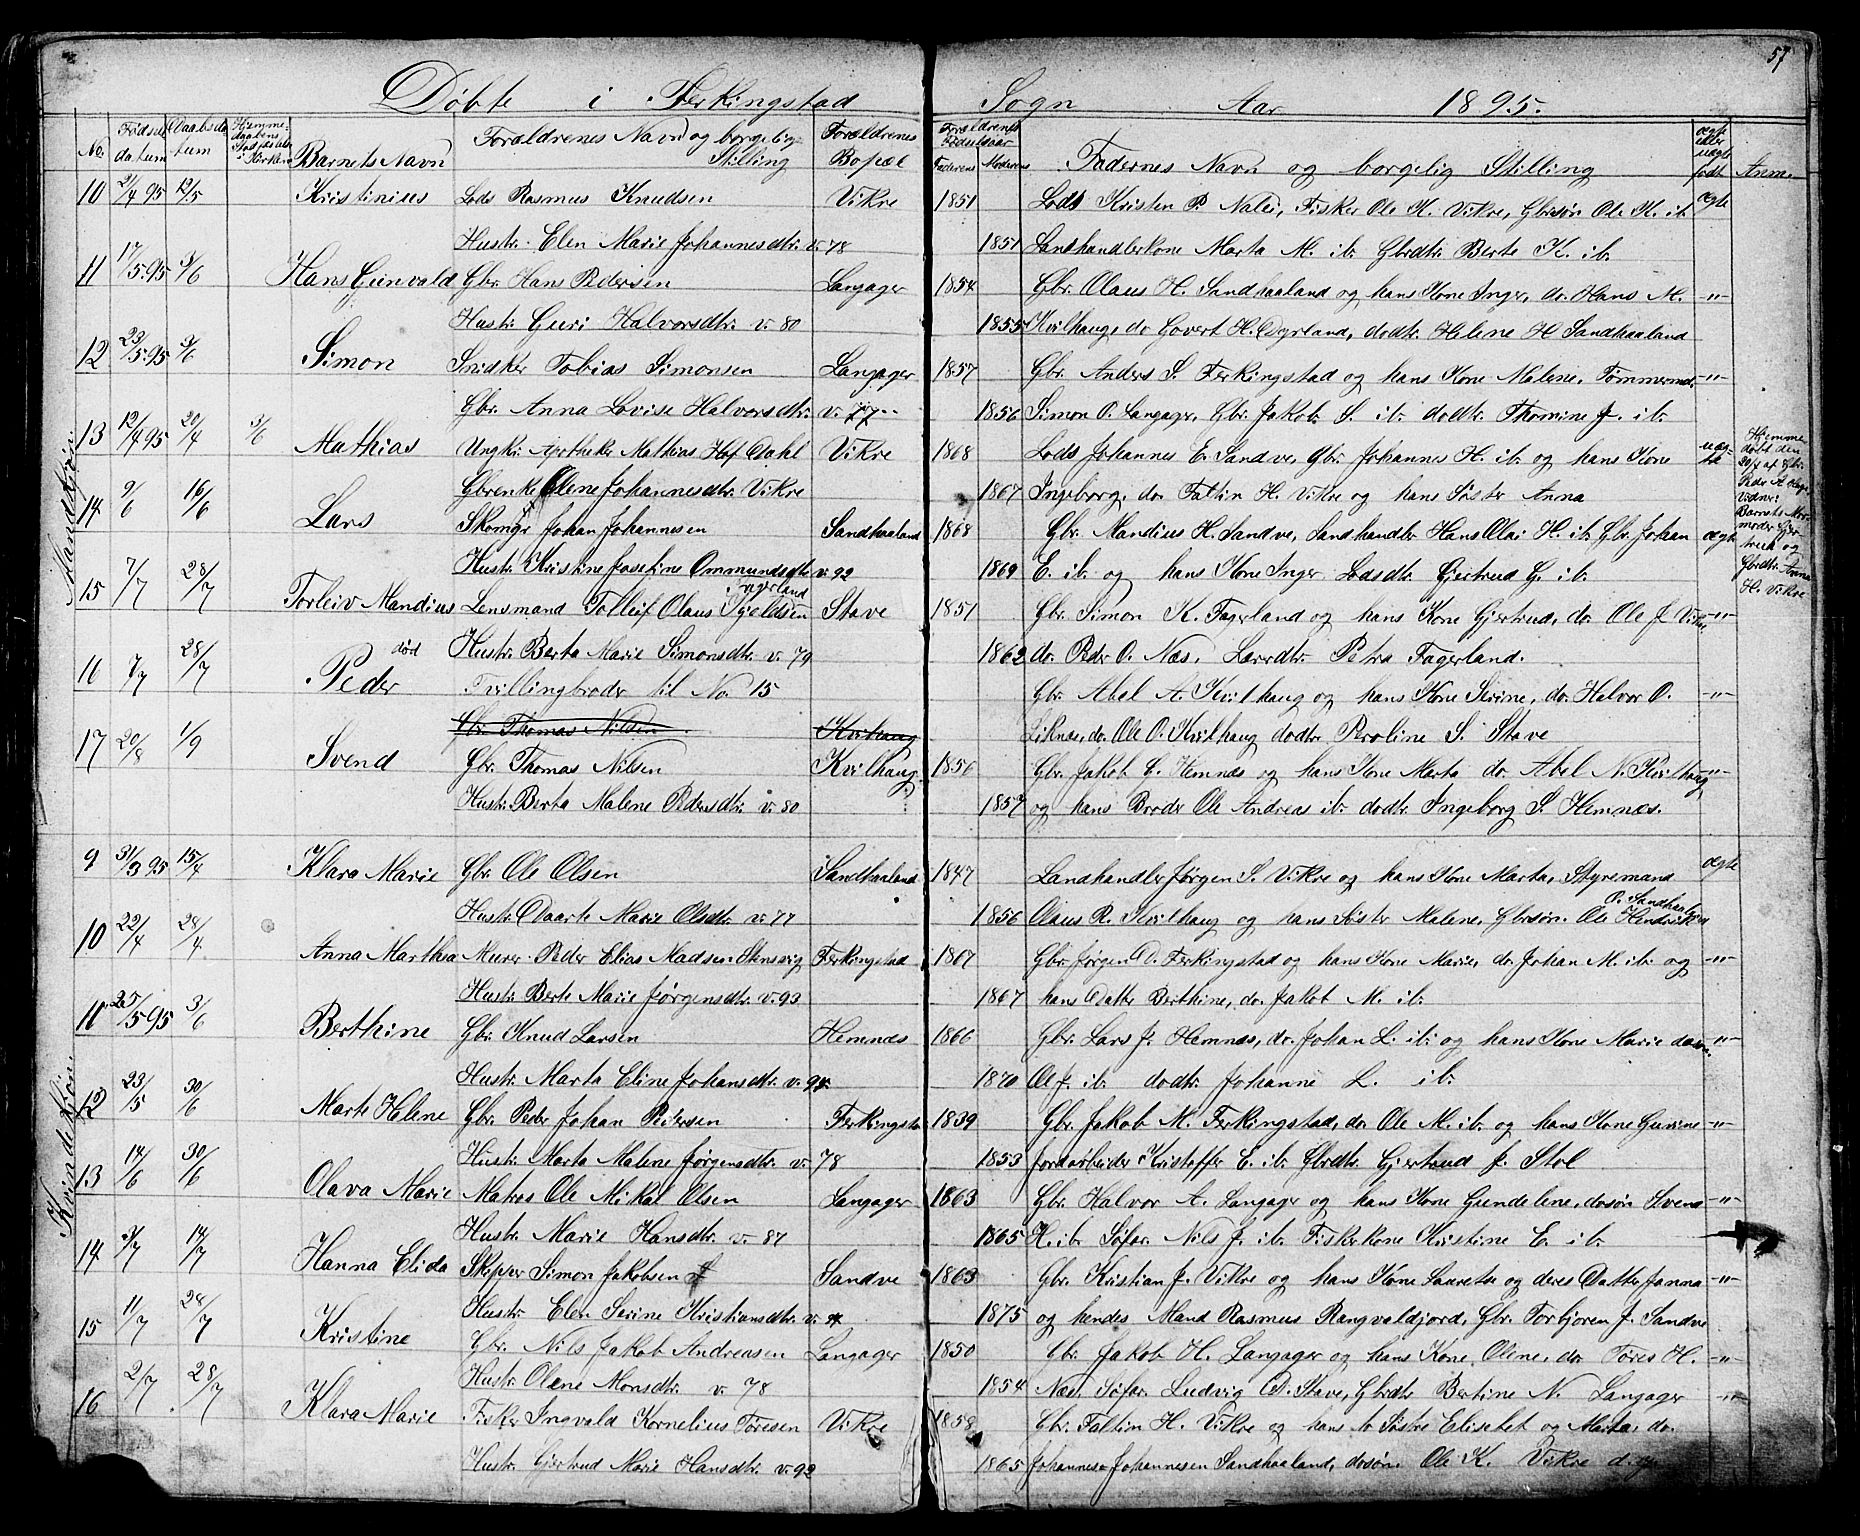 57
Døbte i Ferkingstad Sogn Aar 1895.
No. Fødselsdatum Daabsdatum Hjemmedaabens Stadfæstelse i Kirken Barnets Navn Forældrenes Navn og borgelig Stilling Forældrenes Bopæl Forældrenes Fødselsaar Faderens Moderens Faddernes Navn og borgelig Stilling ægte eller uægte født Anm.
Mandkjøn.
10 2/4 95 12/5 Kristinius Lods Rasmus Knudsen Vikre 1851 Lods Kristen P. Nalei, Fisker Ole K. Vikre, Gbrsøn Ole K. ib. ægte
Hustr. Elen Marie Johannesdtr. v. 78 1851 Landhandlerkone Marta M. ib. Gbrdtr. Berte K. ib.
11 17/5 95 3/6 Hans Gunvald Gbr. Hans Pedersen Langager 1854 Gbr. Olaus H. Sandhaaland og hans Kone Inger, do. Hans M. -"-
Hustr. Guri Halvorsdtr. v. 80 1855 Kvilhaug, do Govert H. Dyrland, dodtr. Helene H Sandhaaland
12 23/5 95 3/6 Simon Snidker Tobias Simonsen Langager 1857 Gbr. Anders S. Ferkingstad og hans Kone Malene, Tømmermd. -"-
Gbr. Anna Lovise Halvorsdtr. v. 77 1856 Simon O. Langager, Gbr. Jakob S. ib. dodtr. Thomine J. ib.
13 12/4 95 20/4 3/6 Mathias Ungkr. Apotheker Mathias Hof Dahl Vikre 1868 Lods Johannes E. Sandve, Gbr. Johannes H. ib. og hans Kone uægte
Gbrenke Olene Johannesdtr. Vikre 1867 Ingeborg, do. Faltin H. Vikre og hans Søster Anna
Hjemmedøbt den 20/4 af Gbr. Peder A. Vidner: Barnets Mormoder Gjertrud og Gbrdtr. Anna H. Vikre
14 9/6 16/6 Lars Skomgr. Johan Johannesen Sandhaaland 1868 Gbr. Mandius H. Sandve, Landhandler Hans Olai H. ib. Gbr. Johan ægte
Hustr. Kristine Josefine Ommundsdtr. v. 92 1869 E. ib. og hans Kone Inger Lodsdtr. Gjertrud G. ib.
15 7/7 28/7 Torleiv Mandius Lensmand Tolleif Olaus Kjeldsen Fagerland Stave 1851 Gbr. Simon K. Fagerland og hans Kone Gjertrud, do. Ole J. Vikre, -"-
Hustr. Berta Marie Simonsdtr. v. 79 1862 do. Peder O. Næs, Lærrdtr. Petra Fagerland.
16 7/7 28/7 Peder død Tvillingbroder til No. 15 Gbr. Abel A. Kvilhaug og hans Kone Serine, do. Halvor O. -"-
Gbr. Thomas Nilsen Kvihaug Liknæs, do. Ole O. Kvilhaug dodtr. Peroline S. Stave
17 20/8 1/9 Svend Gbr. Thomas Nilsen Kvilhaug 1856 Gbr. Jakob C. Hemnæs og hans Kone Marta do. Abel N. Kvilhaug -"-
Hustr. Berta Malene Pedersdtr. v. 80 1857 og hans Broder Ole Andreas ib. dodtr. Ingeborg S. Hemnæs.
Kvindekjøn.
9 31/3 95 15/4 Klara Marie Gbr. Ole Olsen Sandhaaland 1847 Landhandler Jørgen S. Vikre og hans Kone Marta, Styremand ægte
Hustr. Daarte Marie Olsdtr. v. 77 1856 Olaus R. Kvilhaug og hans Søster Malene, Gbrsøn. Ole Hendriksen O. Sandhaaland
10 22/4 28/4 Anna Marthea Murer Peder Elias Madsen Stensvig Ferkingstad 1867 Gbr. Jørgen D. Ferkingstad og hans Kone Marie, do. Johan M. ib. og -"-
Hustr. Berte Marie Jørgensdtr. v. 93 1867 hans Datter Berthine, do. Jakob M. ib.
11 25/5 95 3/6 Berthine Gbr. Knud Larsen Hemnæs 1866 Gbr. Lars J. Hemnæs, do. Johan L. ib. og hans Kone Marie -"-
Hustr. Marta Eline Johansdtr. v. 94 1870 Ole J. ib. dodtr. Johanne L. ib.
12 23/5 30/6 Marte Helene Gbr. Peder Johan Pedersen Ferkingstad 1839 Gbr. Jakob M. Ferkingstad, do. Ole M. ib. og hans Kone Gurine -"-
Hustr. Marta Malene Jørgensdtr. v. 78 1853 Jordarbeider Kristoffer E. ib. Gbrdtr. Gjertrud J. Stol
13 14/6 30/6 Olava Marie Matros Ole Mikal Olsen Langager 1863 Gbr. Halvor A. Langager og hans Kone Gundelene, dosøn Svend -"-
Hustr. Marie Hansdtr. v. 87 1865 H. ib. Søfar. Nils J. ib. Fiskerkone Kristine E. ib.
14 3/7 14/7 Hanna Elida Skipper Simon Jakobsen Sandve 1863 Gbr. Kristian J. Vikre og hans Kone Lauretse og deres Datter Janna -"-
Hustr. Elen Serine Kristiansdtr. v. 1875 og hendes Mand Rasmus Rangvaldjord, Gbr. Torbjoren J. Sandve
15 11/7 28/7 Kristine Gbr. Nils Jakob Andreasen Langager 1850 Gbr. Jakob H. Langager og hans Kone Olene, do Tøres H. -"-
Hustr. Olene Monsdtr. v. 78 1854 Næs, Søfar. Ludvig D. Stave, Gbrdtr Bertine N. Langager
16 2/7 28/7 Klara Marie Fisker Ingvald Kornelius Tøresen Vikre 1858 Gbr. Faltin H. Vikre og hans to Søstre Elisebet og Marta, do. -"-
Hustr. Gjertrud Marie Hansdtr. v. 92 1865 Johannes Johannesen Sandhaaland, dosøn. Ole K. Vikre d.y.